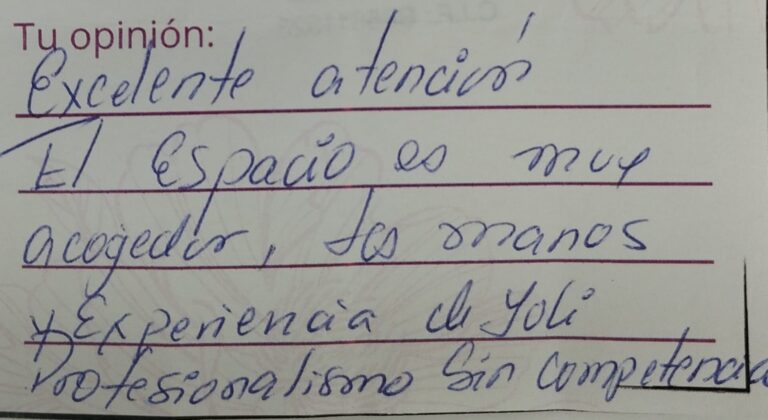 Tu opinión:
Excelente atención
El Espacio es muy
acogedor, las manos
y Experiencia de Yoli
Profesionalismo Sin competencia